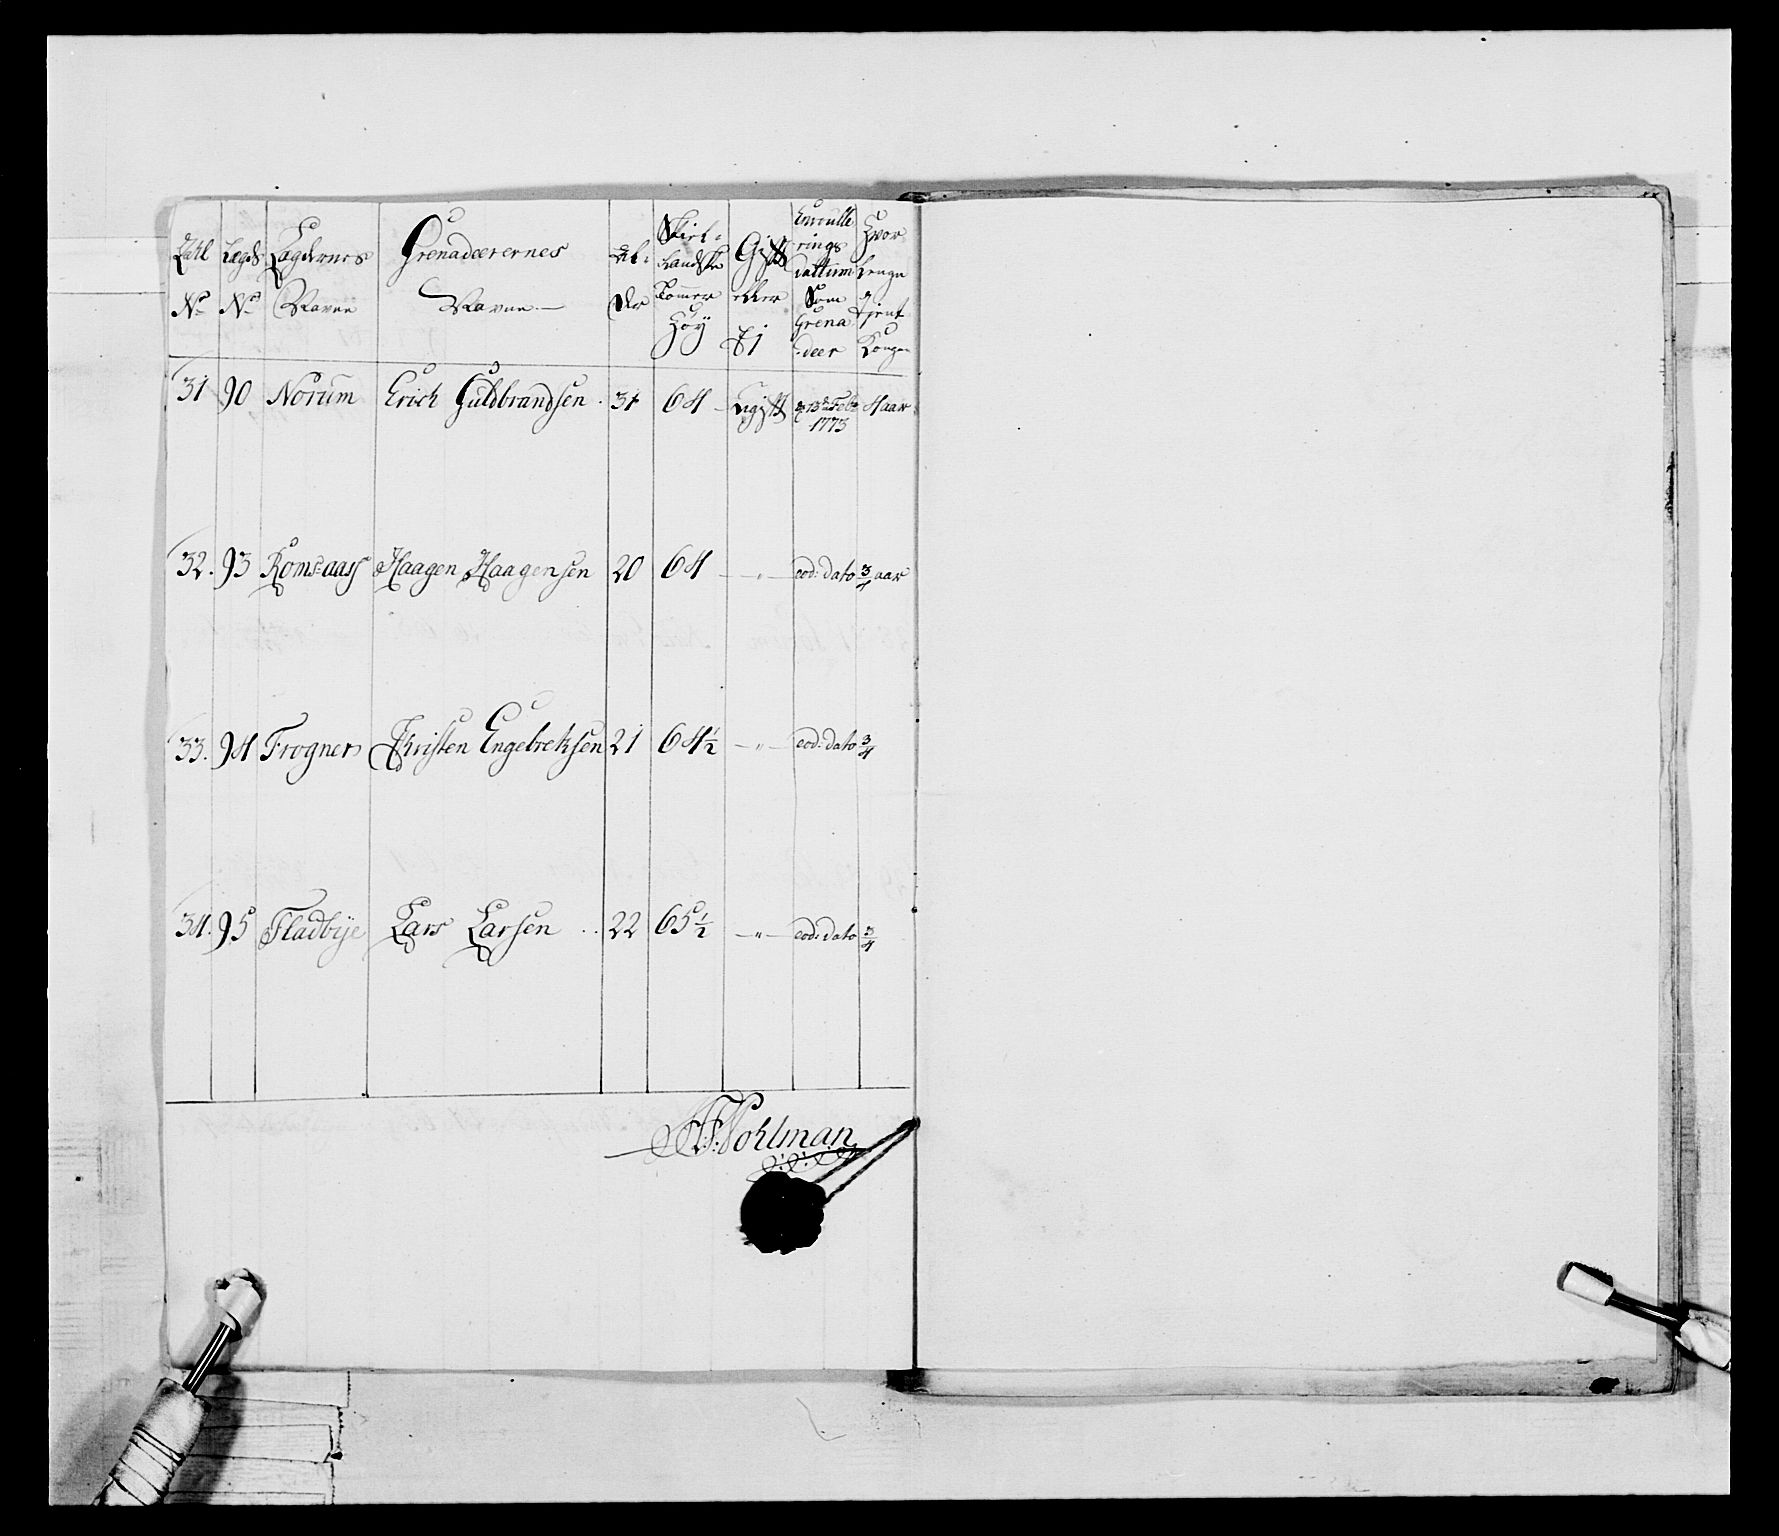 Tahl No | Lægds No | Lægdernes Navne | Grenadeerernes Navne | Al= der | Siel= landske Tommer Høy | Gift eller Ej | Enroulle rings Dattum Som Grena =deer | Hvor Lenge Tjent Kongen
31 | 90 | Norum | Erich Guldbrandsen . | 31 | 64 | Ugift | d 13de Feb: 1773 | 4 aar
32. | 93 | Romsaas | Haagen Haagensen | 20 | 64 | — " — | eod: dato | 3/4 aar
33. | 94 | Frogner | Christen Engebretsen | 21 | 64 1/2 | — " — | eod: dato | 3/4
34. | 95 | Fladbÿe | Lars Larsen . . | 22 | 65 1/2 | — " — | eod: dato | 3/4
Pohlman